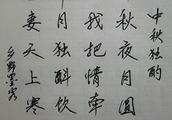 中秋独酌
秋夜月圆
我把情牵
月独酌饮
妻天上寒
乡野墨客